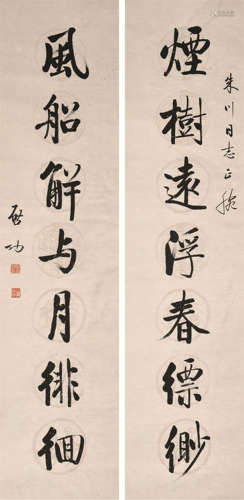 煙樹遠浮春縹緲
朱川同志正腕
風船解与月徘徊
啟功